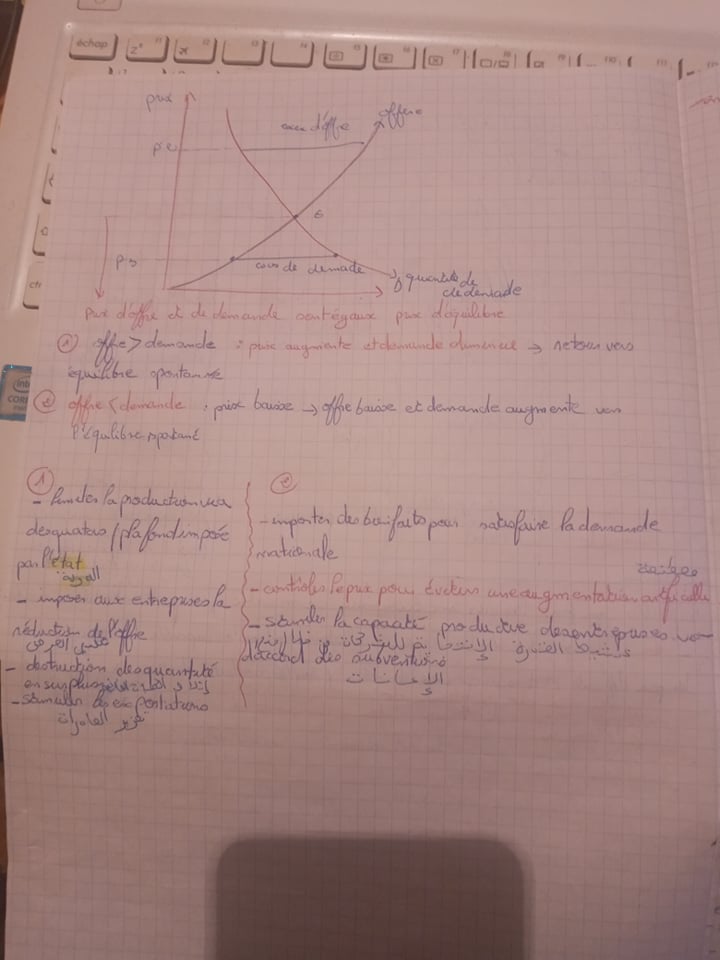 échap
prix
offre
d'offre
p2
E
p3
de demade
quantité de
prix d'offre et de demande sont égaux prix d'équilibre
① offre > demande : prix augmente et demande diminue → retour vers
équilibre spontané
② offre < demande : prix baisse → offre baisse et demande augmente vers
l'équilibre spontané
①
- limiter la production via
des quotas / plafond imposée
par l'état
الدولة
- imposer aux entreprises la
réduction de l'offre
تقليص العرض
- destruction des quantité
en surplus
- stimuler les exportations
تعزيز الصادرات
②
- importer des pour satisfaire la demande
nationale
مصطنعة
- contrôler le prix pour éviter une augmentation artificielle
- stimuler la capacité productive des entreprises
تنشيط القدرة الإنتاجية للشركات من خلال
des subventions
الإعانات